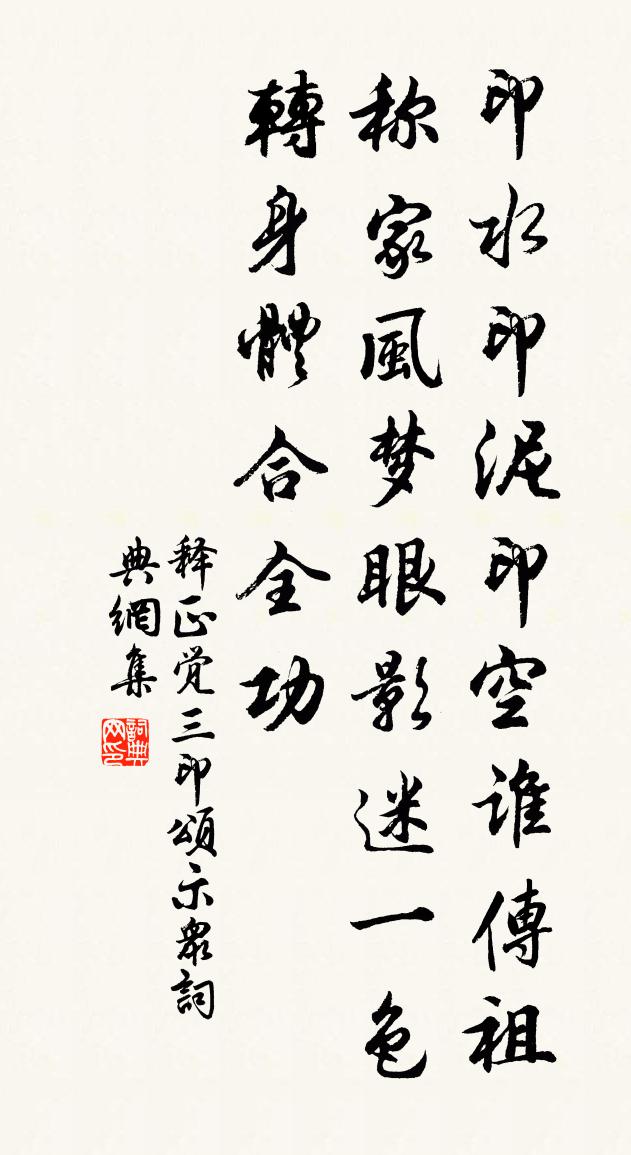 印水印泥印空谁傳祖
称家風梦眼影迷一色
轉身體合全功
释正觉三印頌示衆詞
典網集
詞典网印